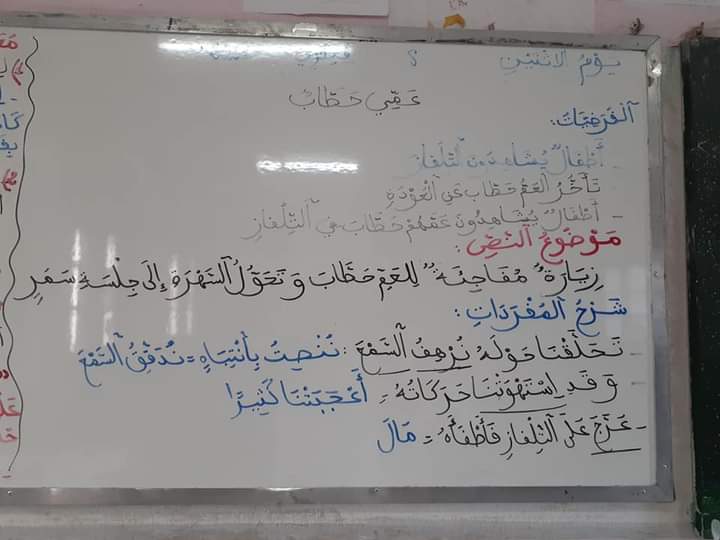 يَوْمُ الاثْنَيْنِ 8
عَمِّي خَطَّابٌ
الْفَرَضِيَّاتُ:
- أَطْفَالٌ يُشَاهِدُونَ التِّلْفَازَ
- تَأَخُّرُ الْعَمِّ خَطَّاب عَنِ الْعَوْدَةِ
- أَطْفَالٌ يُشَاهِدُونَ عَمَّهُمْ خَطَّابَ فِي التِّلْفَازِ
مَوْضُوعُ النَّصِّ:
زِيَارَةٌ مُفَاجِئَةٌ لِلْعَمِّ خَطَّابَ وَتَحَوُّلُ السَّهْرَةِ إِلَى جِلْسَةِ سَمَرٍ
شَرْحُ الْمُفْرَدَاتِ:
- تَحَلَّقْنَا حَوْلَهُ نُرْهِفُ السَّمْعَ: نُنْصِتُ بِانْتِبَاهٍ = نُدَقِّقُ السَّمْعَ
- وَقَدِ اسْتَهْوَتْنَا حَرَكَاتُهُ = أَعْجَبَتْنَا كَثِيرًا
- عَرَّجَ عَلَى التِّلْفَازِ فَأَطْفَأَهُ = مَالَ